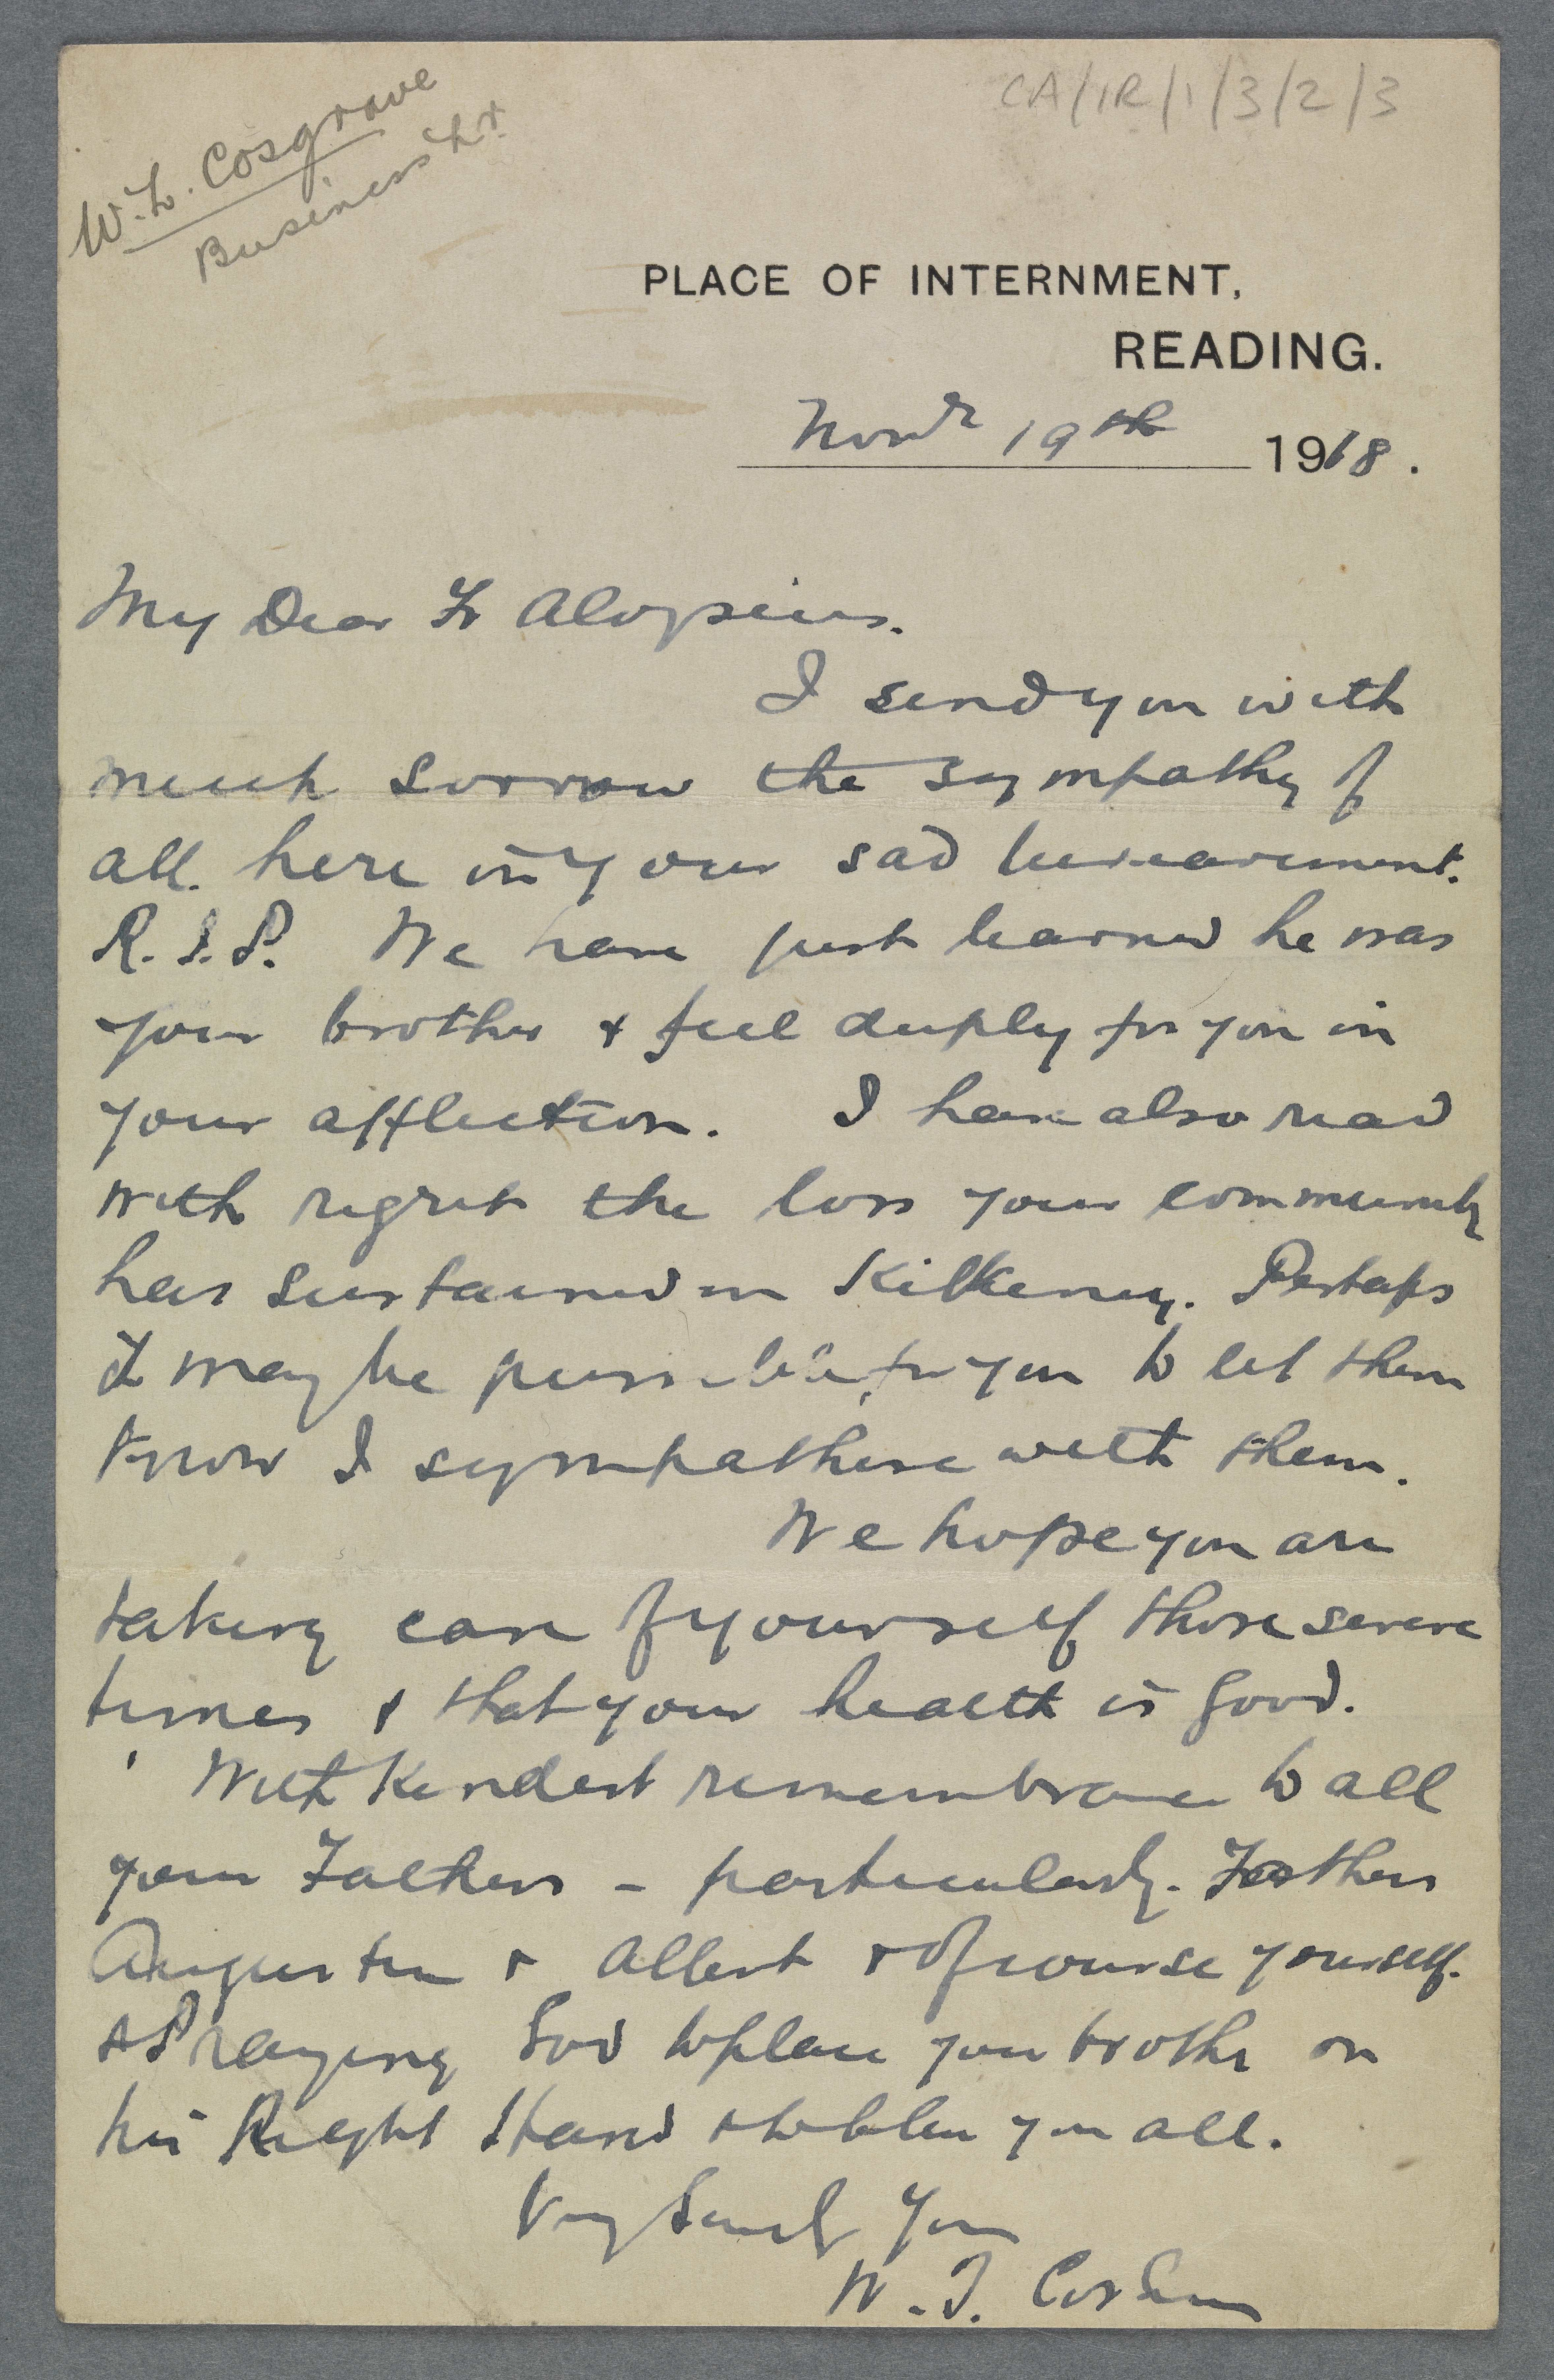 CA/IR/1/3/2/3
W. T. Cosgrave
Business Lr.
PLACE OF INTERNMENT,
READING.
Novr 19th 1918.
My Dear Fr Aloysius.
I send you with
much sorrow the sympathy of
all here in your sad bereavement.
R.I.P. We have just learned he was
your brother & feel deeply for you in
your affliction. I have also read
with regret the loss your community
has sustained in Kilkenny. Perhaps
it may be possible for you to let them
know I sympathise with them.
We hope you are
taking care of yourself these severe
times & that your health is good.
With kindest remembrance to all
your Fathers - particularly. Fathers
Augustine & Albert & of course yourself.
& Praying God to place your brother on
his Right Hand & to bless you all.
Very Sincerely Yours
W. T. Cosgrave